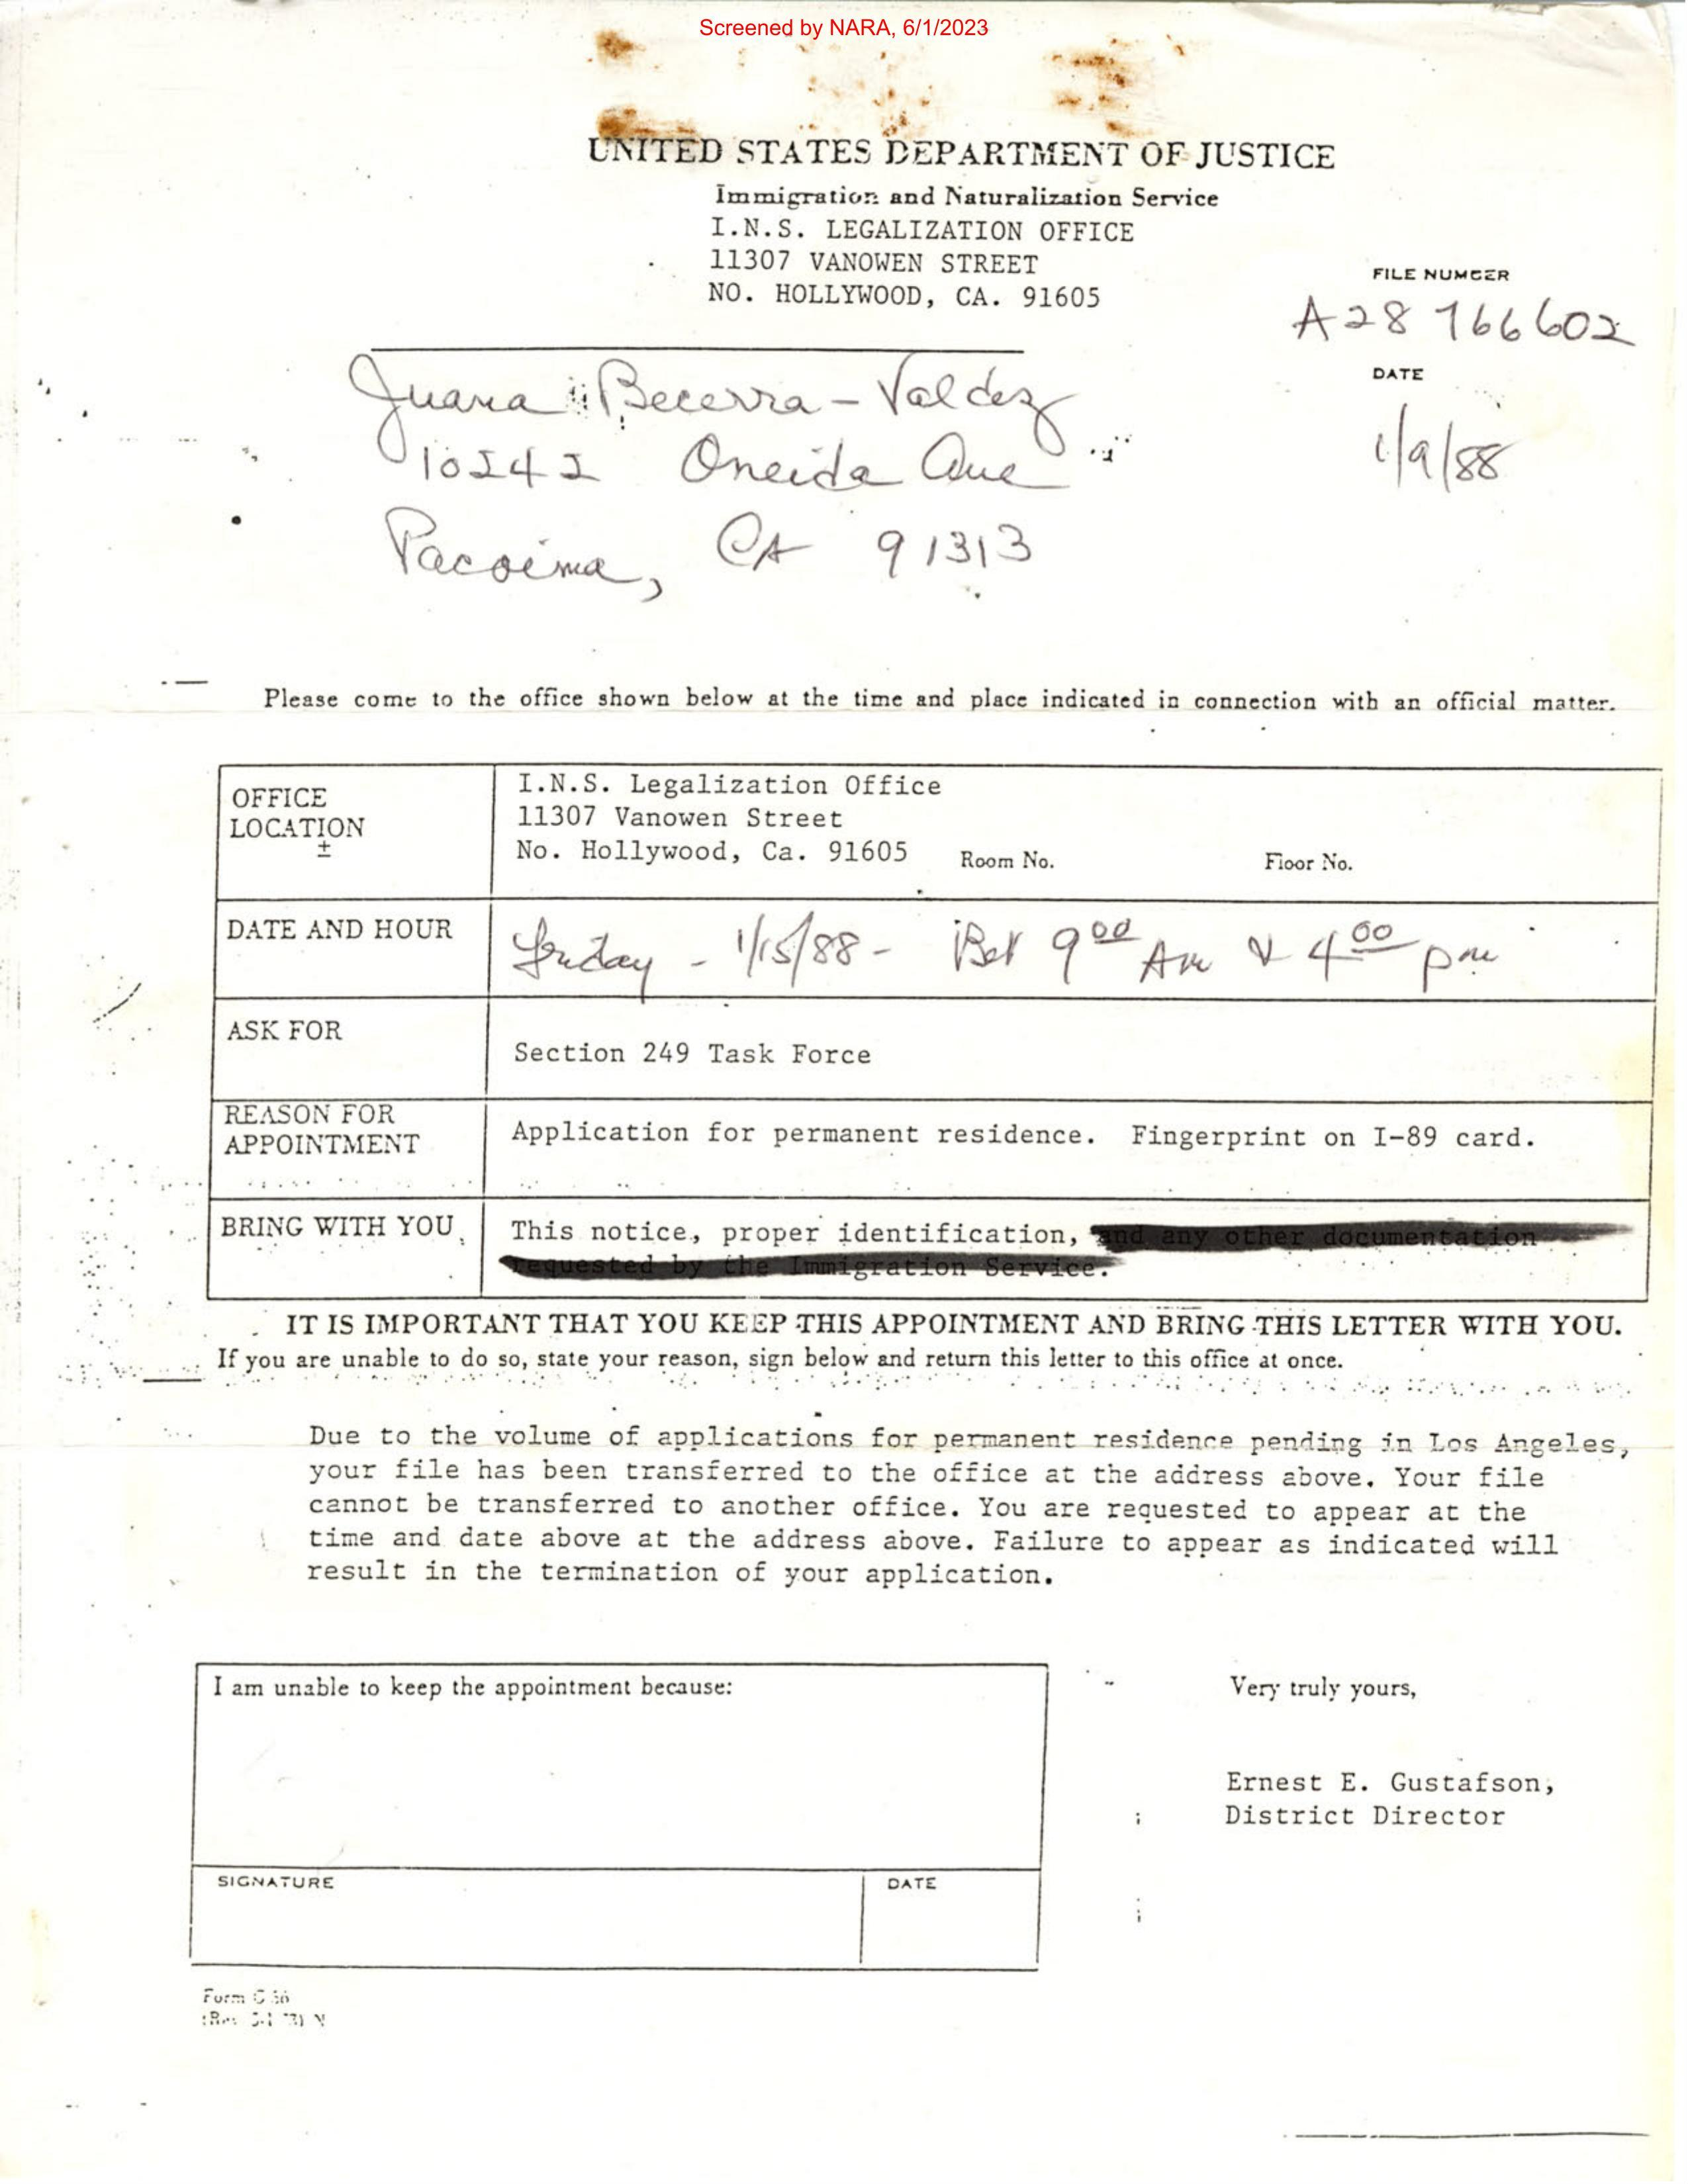 Screened by NARA, 6/1/2023
UNITED STATES DEPARTMENT OF JUSTICE
Immigration and Naturalization Service
I.N.S. LEGALIZATION OFFICE
11307 VANOWEN STREET
NO. HOLLYWOOD, CA. 91605
FILE NUMBER
A28 766602
DATE
1/9/88
Juana Becerra-Valdez
10242 Oneida Ave
Pacoima, CA 91313
Please come to the office shown below at the time and place indicated in connection with an official matter.
OFFICE
LOCATION
±
I.N.S. Legalization Office
11307 Vanowen Street
No. Hollywood, Ca. 91605 Room No. Floor No.
DATE AND HOUR
Friday - 1/15/88 - Bet 9 00 Am & 4 00 pm
ASK FOR
Section 249 Task Force
REASON FOR
APPOINTMENT
Application for permanent residence. Fingerprint on I-89 card.
BRING WITH YOU
This notice, proper identification, and any other documentation
requested by the Immigration Service.
IT IS IMPORTANT THAT YOU KEEP THIS APPOINTMENT AND BRING THIS LETTER WITH YOU.
If you are unable to do so, state your reason, sign below and return this letter to this office at once.
Due to the volume of applications for permanent residence pending in Los Angeles,
your file has been transferred to the office at the address above. Your file
cannot be transferred to another office. You are requested to appear at the
time and date above at the address above. Failure to appear as indicated will
result in the termination of your application.
I am unable to keep the appointment because:
SIGNATURE
DATE
Very truly yours,
Ernest E. Gustafson,
District Director
Form